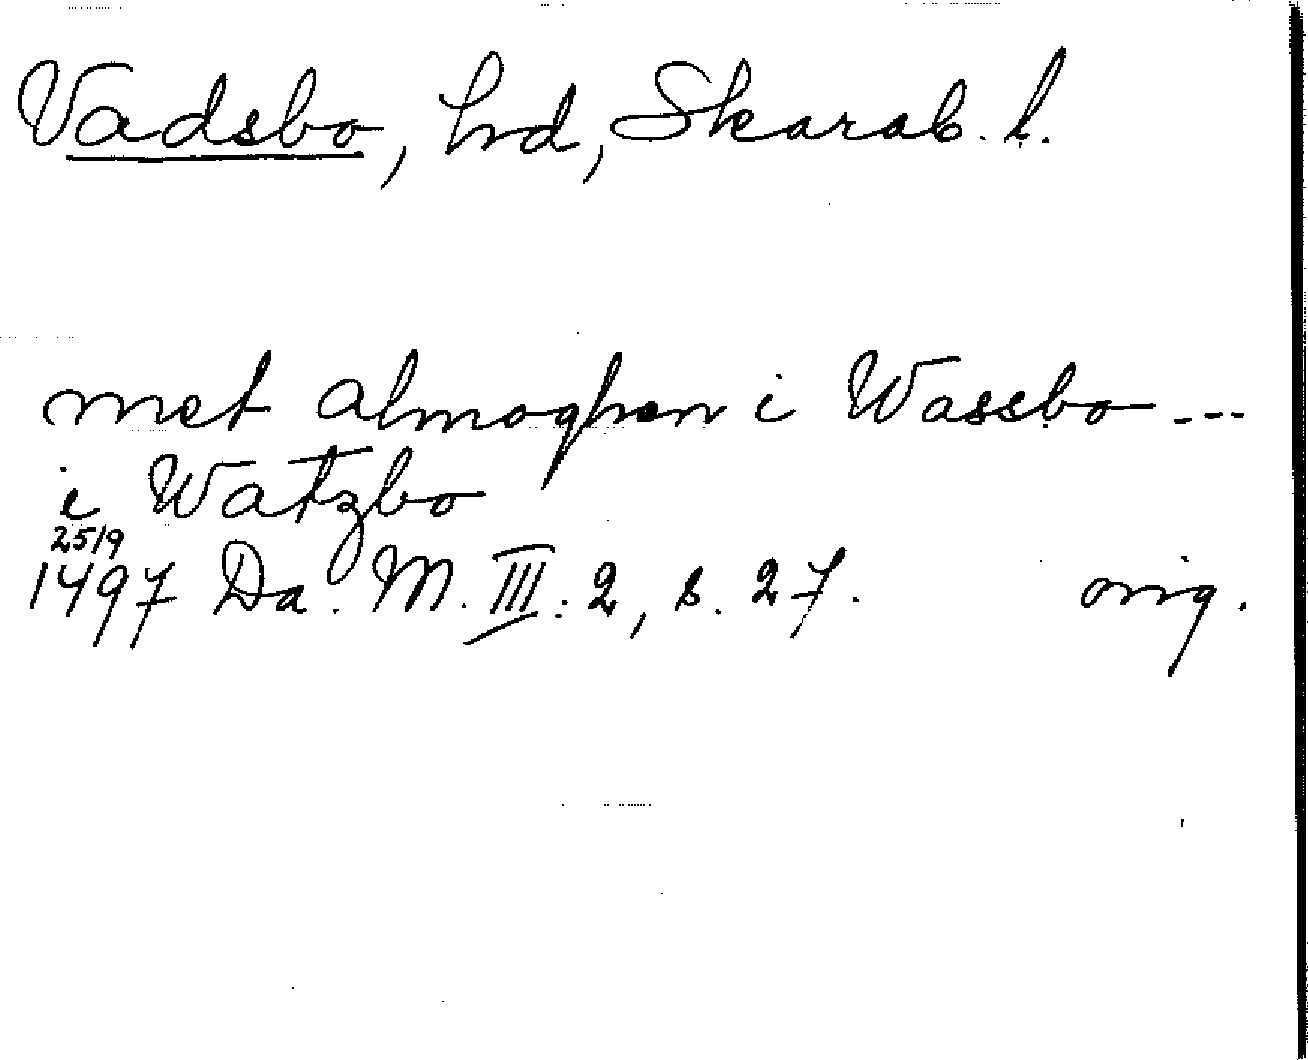 Vadsbo, hrd, Skarab. l.
met almoghen i Wassbo ---
i Watzbo
25/9
1497 Da. M. III: 2, s. 27. orig.